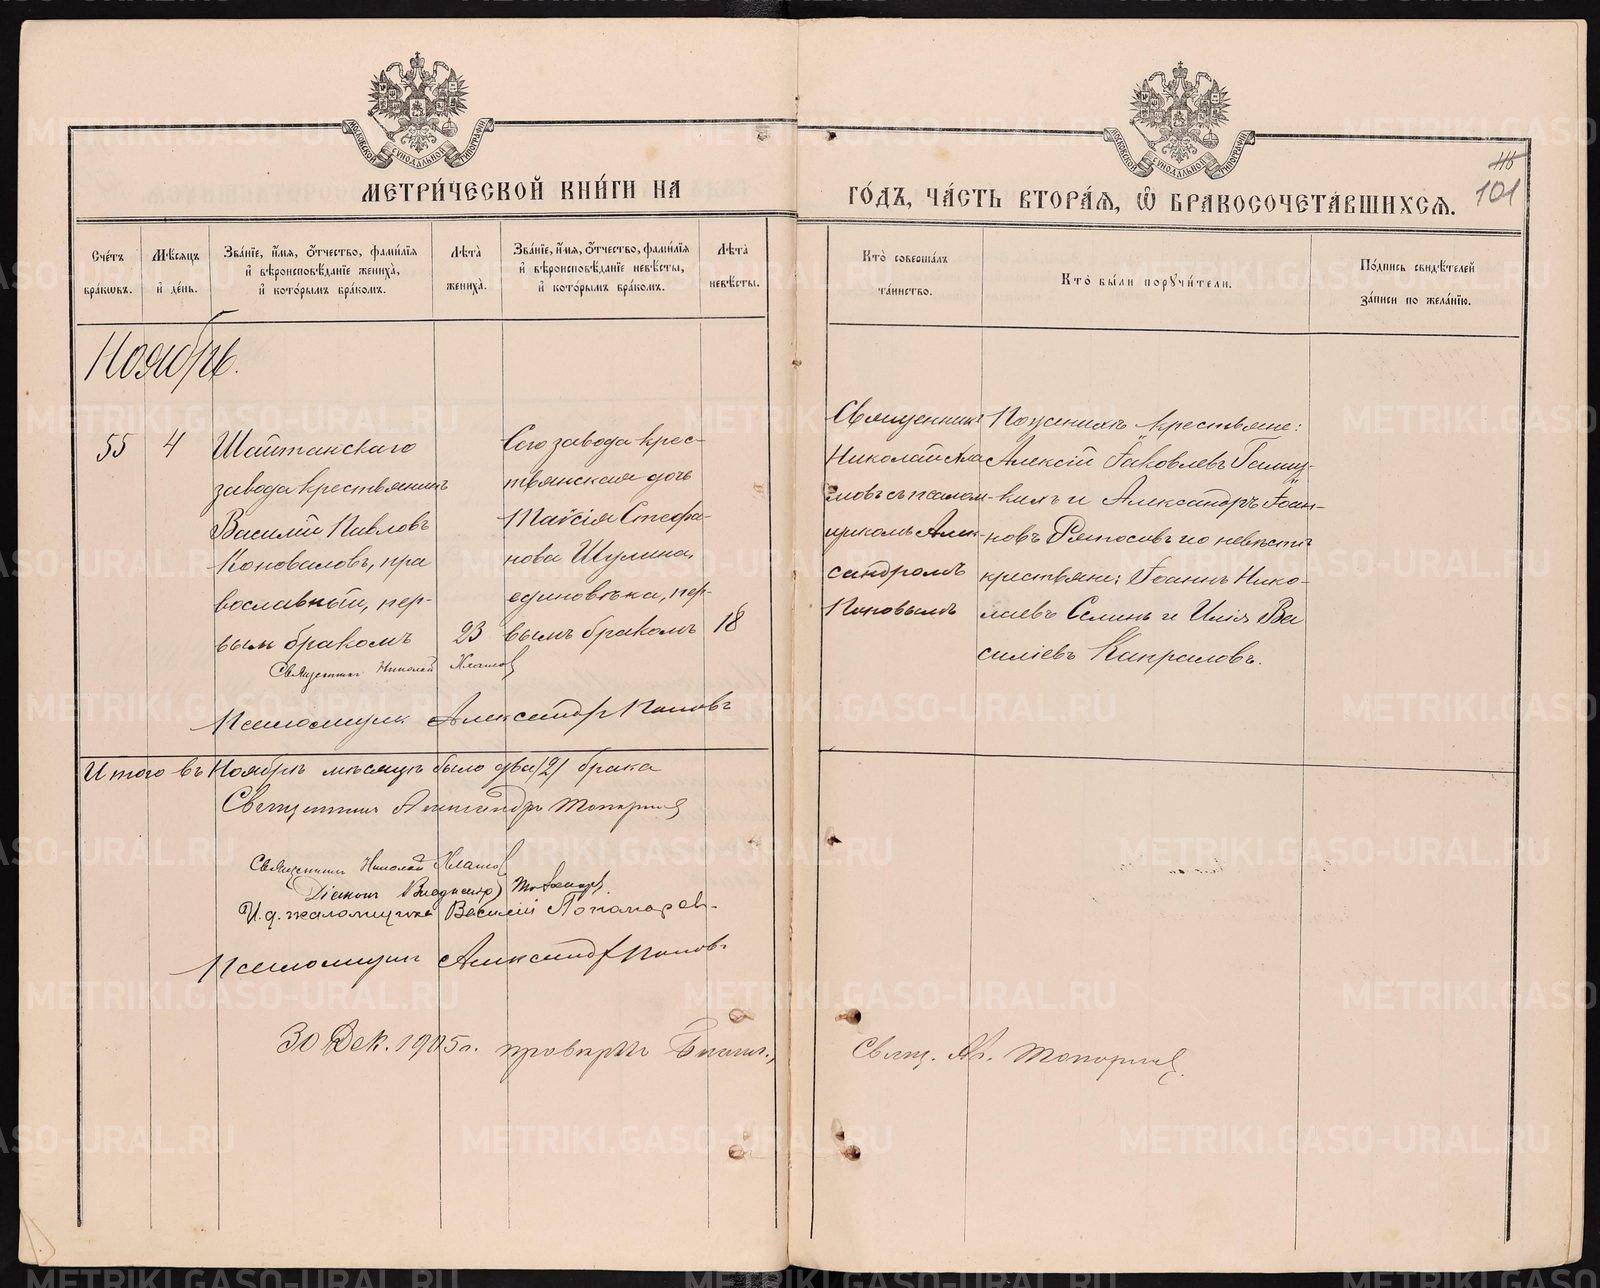 МЕТРИ́ЧЕСКОЙ КНИ́ГИ НА ГО́ДЪ, ЧА́СТЬ ВТОРА́Ѧ, Ѽ БРАКОСОЧЕТА́ВШИХСѦ.
101
Сче́тъ бра́кѡвъ.
Мѣ́сѧцъ и҆ де́нь.
Зва́нїе, и҆́мѧ, ѻ҆́тчество, фами́лїѧ
и҆ вѣроисповѣ́данїе жениха̀,
и҆ кото́рымъ бра́комъ.
Лѣта̀ жениха̀.
Зва́нїе, и҆́мѧ, ѻ҆́тчество, фами́лїѧ
и҆ вѣроисповѣ́данїе невѣ́сты,
и҆ кото́рымъ бра́комъ.
Лѣта̀ невѣ́сты.
Кто̀ соверша́лъ
та́инство.
Кто̀ бы́ли порꙋчи́тели.
По́дпись свидѣ́телей
за́писи по жела́нїю.
Ноябрь.
55
4
Шайтанскаго
завода крестьянинъ
Василій Павловъ
Коноваловъ, пра
вославный, пер-
вымъ бракомъ
23
Сего завода крес-
тьянская дочь
Таисія Стефа-
нова Шулина,
единовѣрка, пер-
вымъ бракомъ
18
Священникъ
Николай Хла
мовъ съ псалом-
щикомъ Алек-
сандромъ
Поповымъ
По женихѣ крестьяне:
Алексій Іаковлевъ Галиц-
кихъ и Александръ Іоан-
новъ Фетосовъ и по невѣстѣ
крестьяне: Іоаннъ Нико-
лаевъ Селинъ и Илія Ва
силіевъ Капраловъ.
Священникъ Николай Хламов
Псаломщикъ Александръ Поповъ
Итого въ Ноябрѣ мѣсяцѣ было два /2/ брака
Священникъ Александръ Топорков
Священникъ Николай Хламов
Діаконъ Владимір
И. д. псаломщика Василій Пономарев
Псаломщикъ Александръ Поповъ
30 Дек. 1905 г. провѣрилъ Благоч.,
Свящ. Ал. Топорков